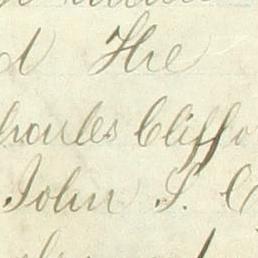 d The
harles Cliffo
John S. C